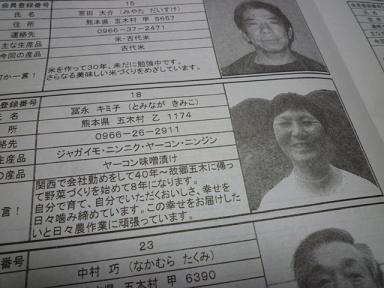 会員登録番号 15
宮田 大介 (みやた だいすけ)
熊本県 五木村 甲 5657
連絡先 0966-37-2471
主な生産品 米・古代米
今回の産品 古代米
何か一言! 米を作って30年、未だに勉強中です。
さらなる美味しい米づくりをめざしています。
登録番号 18
氏 名 冨永 キミ子 (とみなが きみこ)
所 熊本県 五木村 乙 1174
絡先 0966-26-2911
生産品 ジャガイモ・ニンニク・ヤーコン・ニンジン
産品 ヤーコン味噌漬け
言! 関西で会社勤めをして40年～故郷五木に帰っ
て野菜づくりを始めて8年になります。
自分で育て、自分でいただくおいしさ、幸せを
日々噛み締めています。この幸せをお届けした
いと日々農作業に頑張っています。
番号 23
名 中村 巧 (なかむら たくみ)
県 五木村 甲 6390